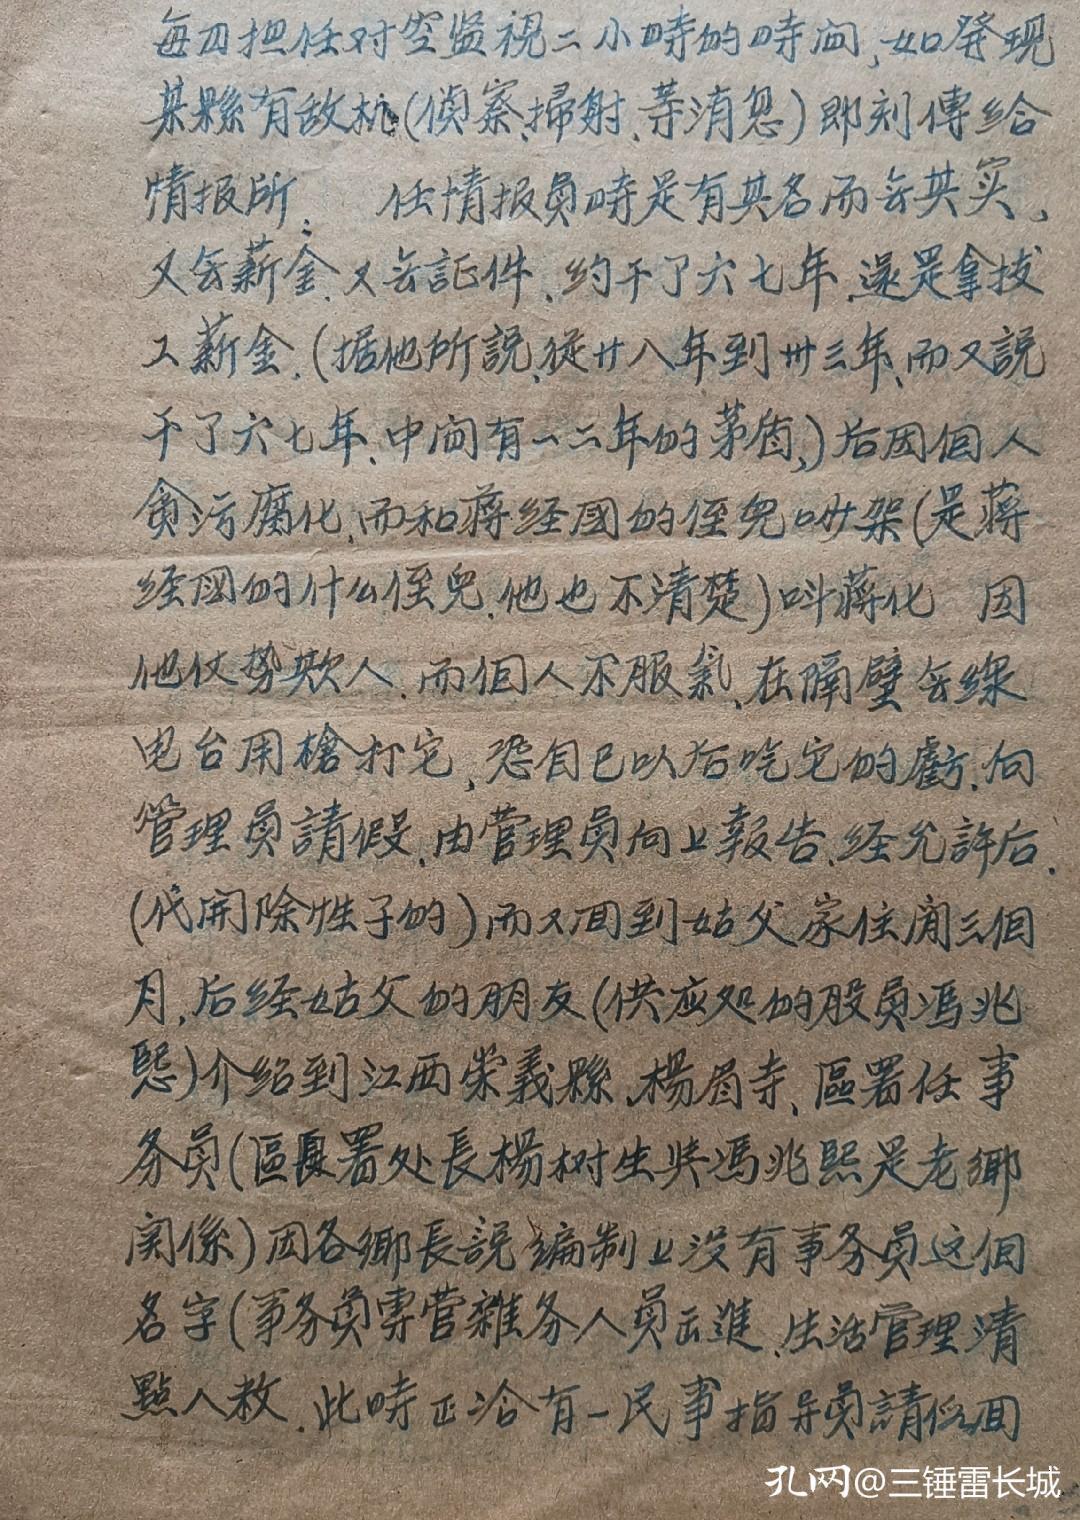 每日担任对空监視二小時的時间,如發现
某縣有敌机(偵察、掃射、等消息)即刻傳給
情报所. 任情报員時是有其名而무其实、
又无薪金、又无証件、约干了六七年、還是拿技
工薪金.(据他所説、從廿八年到卅三年、而又説
干了六七年、中间有一二年的茅盾、)后因個人
貪污腐化、而和蒋経國的侄兒吵架(是蒋
経國的什么侄兒.他也不清楚)叫蒋化 因
他仗势欺人.而個人不服氣、在隔壁无線
电台用槍打它、恐自己以后吃它的虧.向
管理員請假、由管理員向上報告.経允許后.
(代開除性子的)而又回到姑父家住閑三個
月,后経姑父的朋友(供应処的股員馮兆
熙)介紹到江西崇義縣、楊眉寺、區署任事
务員(區署处長楊树生與馮兆熙是老鄉
関係)因各鄉長説编制上没有事务員这個
名字(事务員專管雜务人員出進、生活管理清
點人数.此時正洽有一民事指导員請假回
孔网@三锤雷长城